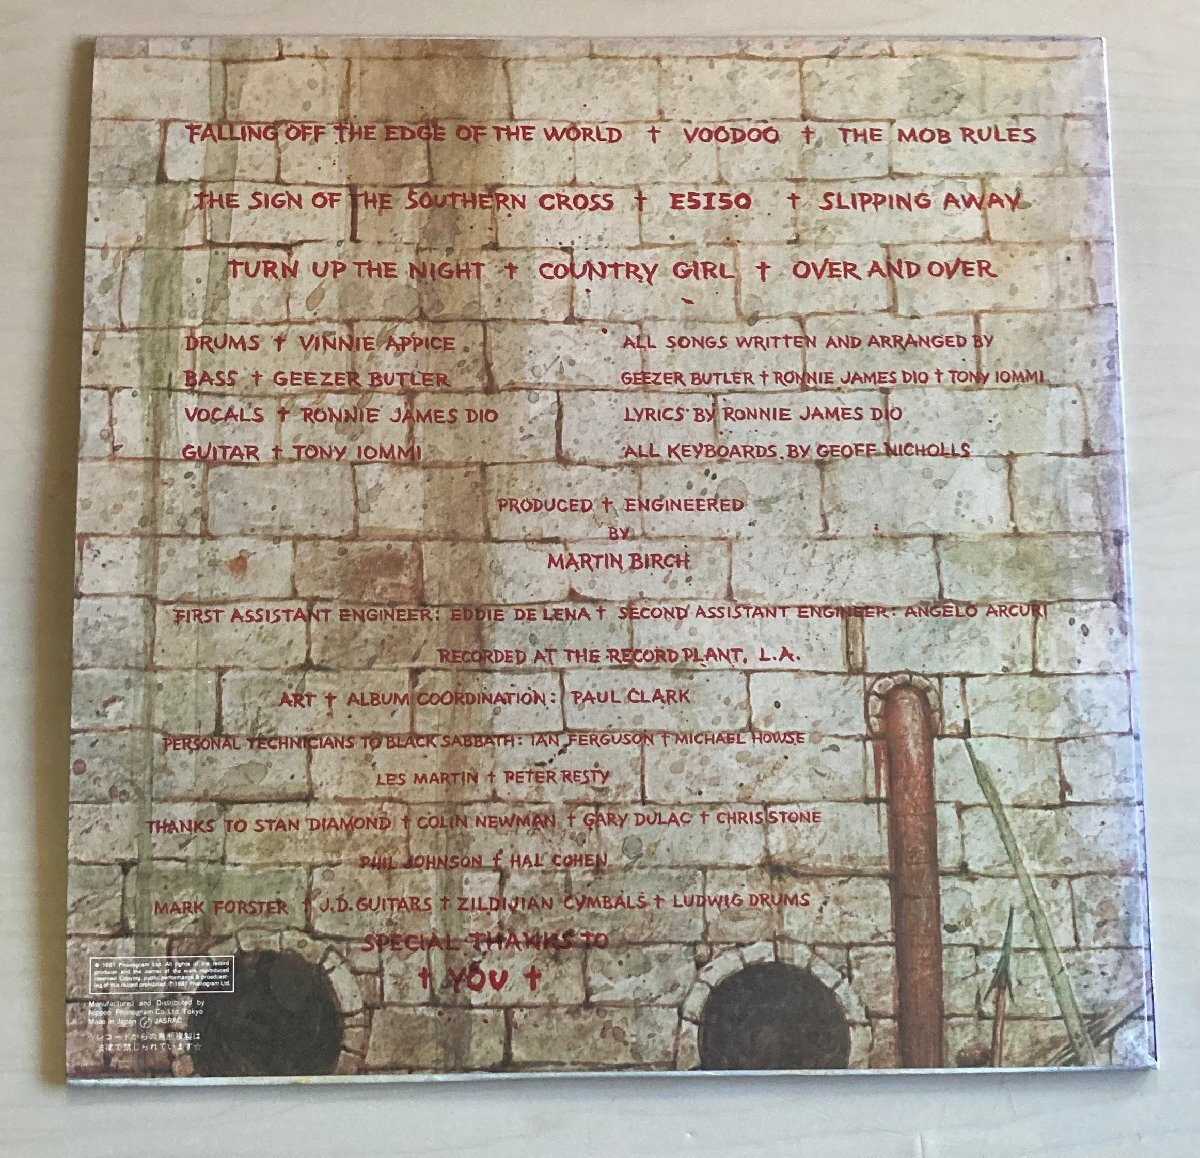 FALLING OFF THE EDGE OF THE WORLD † VOODOO † THE MOB RULES
THE SIGN OF THE SOUTHERN CROSS † E5150 † SLIPPING AWAY
TURN UP THE NIGHT † COUNTRY GIRL † OVER AND OVER
DRUMS † VINNIE APPICE
BASS † GEEZER BUTLER
VOCALS † RONNIE JAMES DIO
GUITAR † TONY IOMMI
ALL SONGS WRITTEN AND ARRANGED BY
GEEZER BUTLER † RONNIE JAMES DIO † TONY IOMMI
LYRICS BY RONNIE JAMES DIO
ALL KEYBOARDS BY GEOFF NICHOLLS
PRODUCED † ENGINEERED
BY
MARTIN BIRCH
FIRST ASSISTANT ENGINEER: EDDIE DE LENA † SECOND ASSISTANT ENGINEER: ANGELO ARCURI
RECORDED AT THE RECORD PLANT, L.A.
ART † ALBUM COORDINATION: PAUL CLARK
PERSONAL TECHNICIANS TO BLACK SABBATH: IAN FERGUSON † MICHAEL HOWSE
LES MARTIN † PETER RESTY
THANKS TO STAN DIAMOND † COLIN NEWMAN † GARY DULAC † CHRIS STONE
PHIL JOHNSON † HAL COHEN
MARK FORSTER † J.D. GUITARS † ZILDJIAN CYMBALS † LUDWIG DRUMS
SPECIAL THANKS TO
† YOU †
℗ 1981 Phonogram Ltd. All rights of the record
producer and the owner of the work reproduced
reserved. Copying, public performance & broadcast-
ing of this record prohibited. ℗1981 Phonogram Ltd.
Manufactured and Distributed by
Nippon Phonogram Co., Ltd. Tokyo
Made in Japan JASRAC
レコードからの無断複製は
法律で禁じられています☆